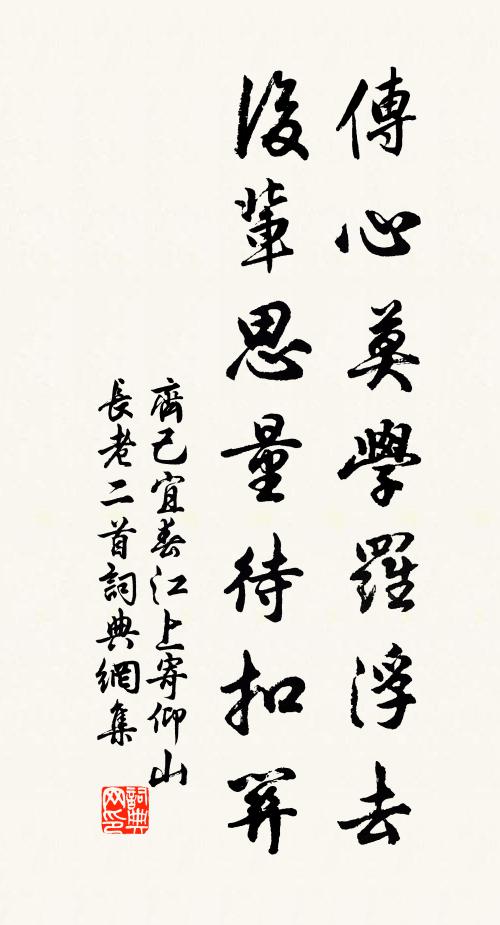 傳心莫學羅浮去
後輩思量待扣關
齊己宜春江上寄仰山
長老二首詞典網集
詞典
网印